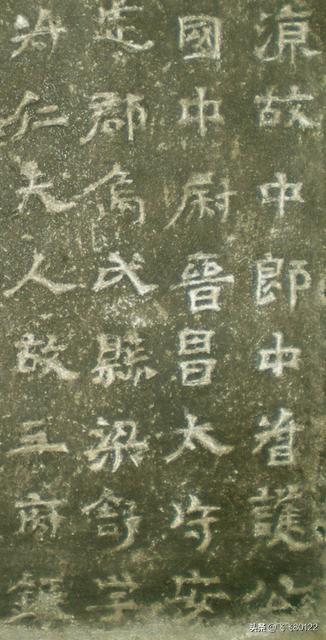 涼故中郎中督護公
國中尉晉昌太守安
定郡烏氏縣梁舒字
叔仁夫人故三府錄
头条